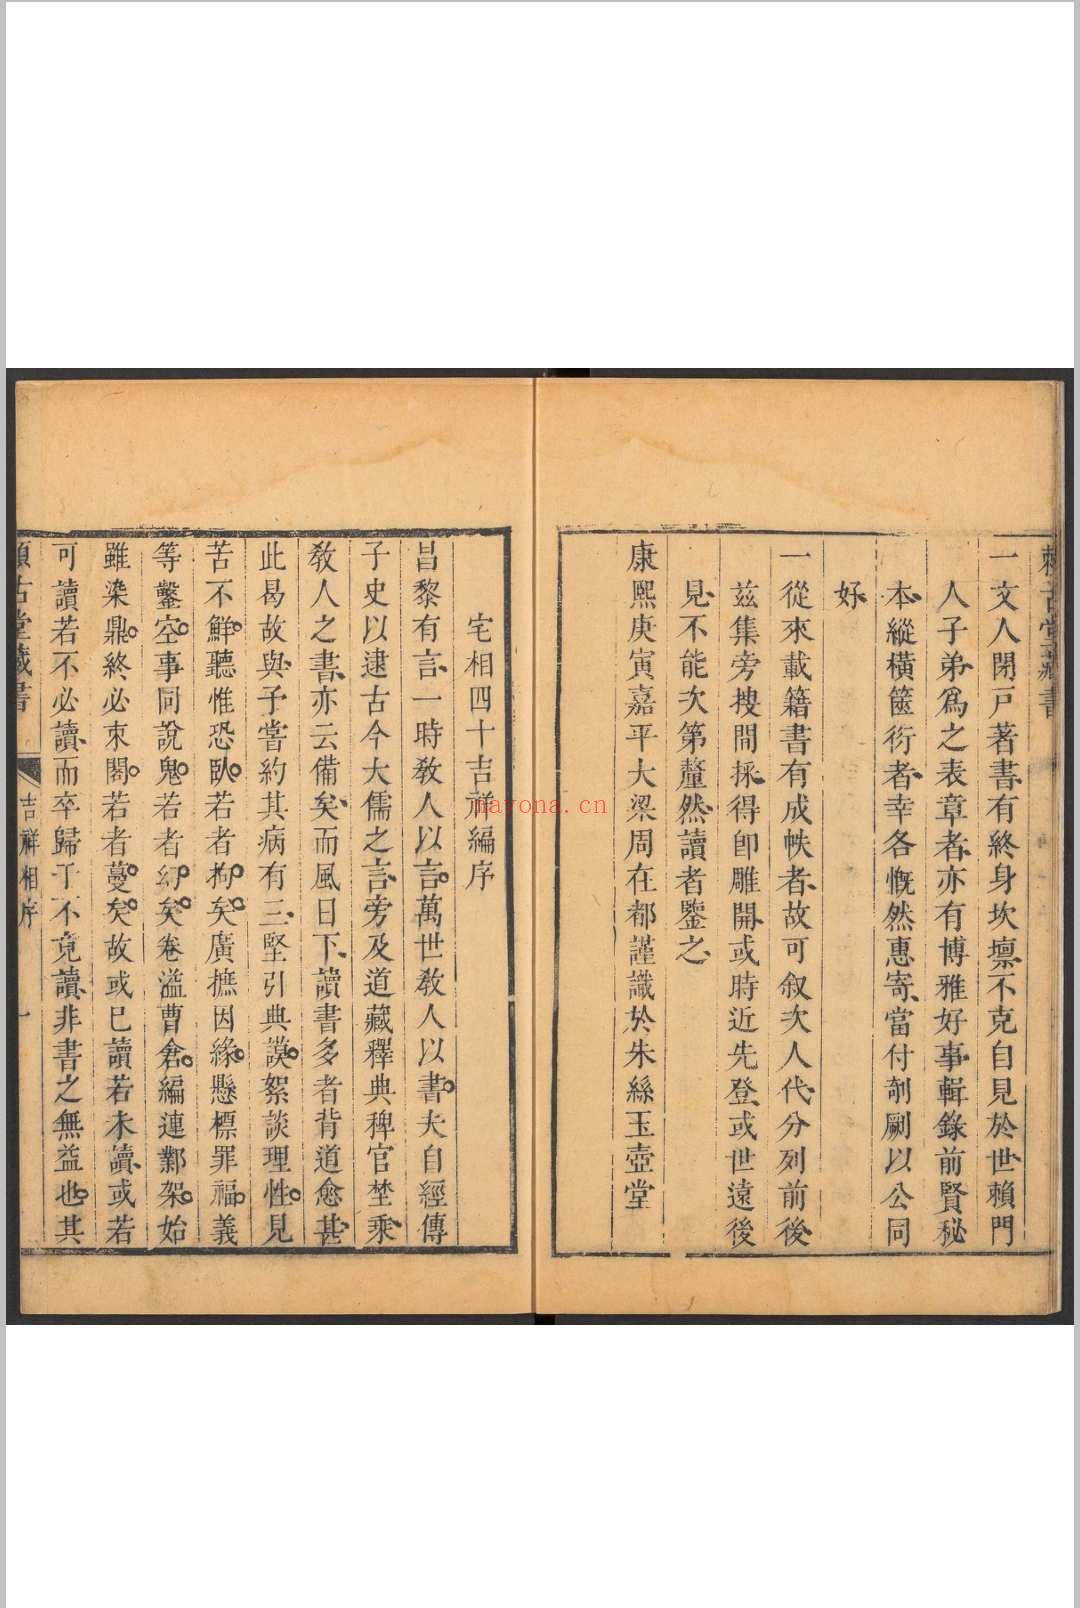 賴古堂藏書
一文人閉戸著書有終身坎壈不克自見於世賴門
人子弟為之表章者亦有博雅好事輯錄前賢秘
本縱橫篋衍者幸各慨然惠寄當付剞劂以公同
好
一從來載籍書有成帙者故可叙次人代分列前後
兹集旁搜間採得卽雕開或時近先登或世遠後
見不能次第釐然讀者鑒之
康熙庚寅嘉平大梁周在都謹識於朱絲玉壺堂
宅相四十吉祥編序
昌黎有言一時教人以言萬世教人以書夫自經傳
子史以逮古今大儒之言旁及道藏釋典稗官埜乘
教人之書亦云備矣而風日下讀書多者背道愈甚
此曷故與予嘗約其病有三堅引典謨絮談理性見
苦不鮮聽惟恐臥若者拘矣廣摭因緣懸標罪福義
等鑿空事同說鬼若者幻矣卷溢曹倉編連鄴架始
雖染鼎終必束閣若者蔓矣故或已讀若未讀或若
可讀若不必讀而卒歸于不竟讀非書之無益也其
賴古堂藏書
吉祥相序
一
nayona.cn